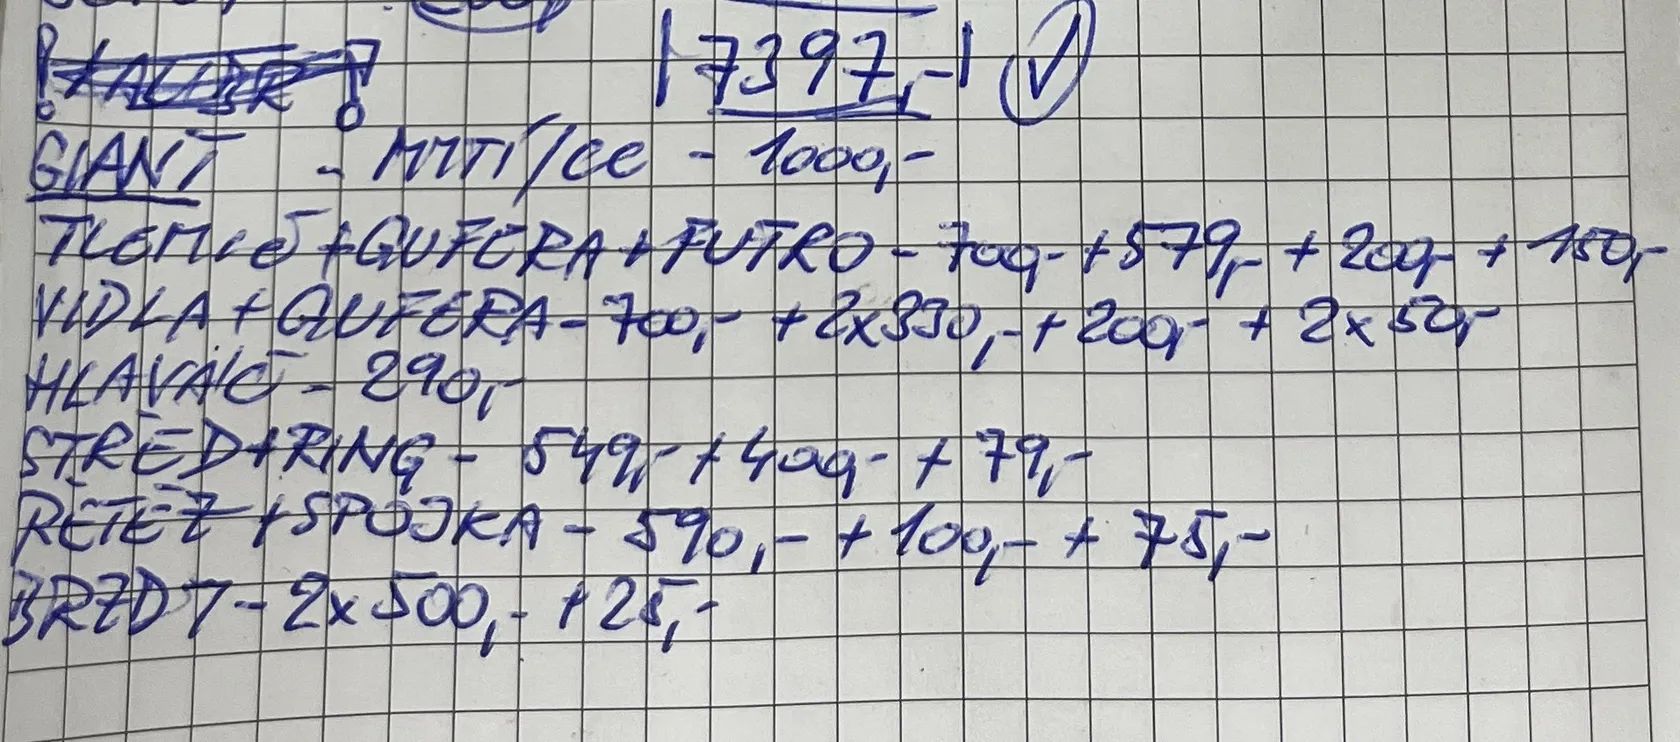 |7397,-| ✓
GIANT - MYTÍ/CC - 1000,-
TLUMIČ + GUFERA + FUTRO - 700,- + 579,- + 200,- + 150,-
VIDLA + GUFERA - 700,- + 2x330,- + 200,- + 2x50,-
HLAVAIČ - 290,-
STŘED + RING - 549,- + 400,- + 79,-
ŘETĚZ + SPOJKA - 590,- + 100,- + 75,-
BRZDY - 2x500,- + 25,-